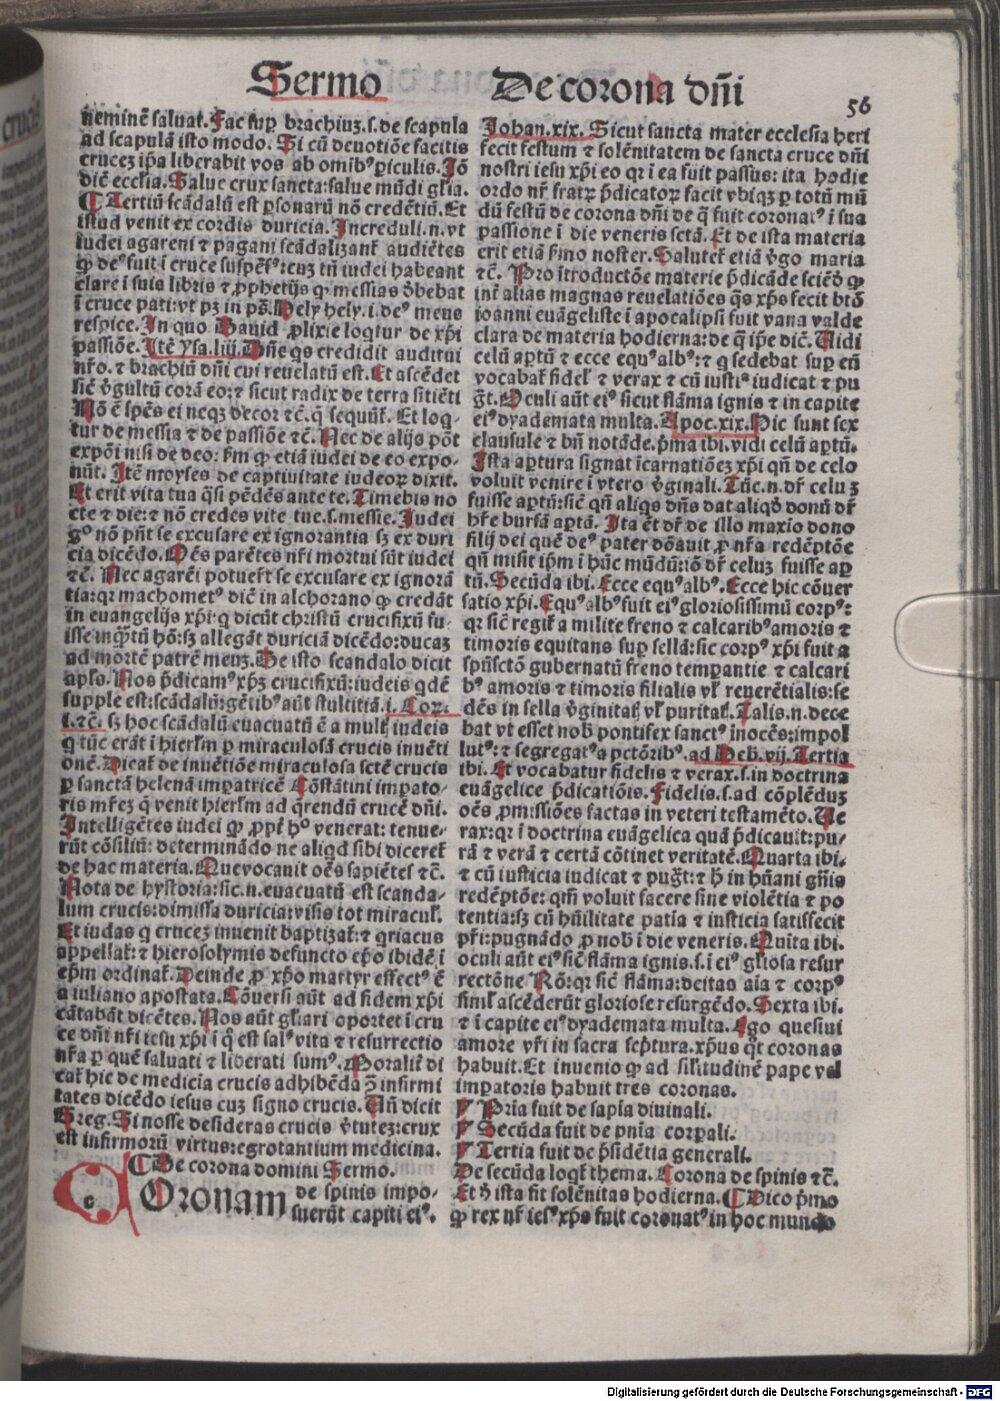 Sermo De corona dñi
56
neminē saluat. Fac sup brachiuʒ.s.de scapula
ad scapulā isto modo. Si cū deuotiōe facitis
crucez ip̄a liberabit vos ab omibꝰ piculis. Iō
dic̄ ecclia. Salue crux sancta: salue mūdi gl̄ia.
¶ Tertiū scādalū est psonarū nō credētiū. Et
istud venit ex cordis duricia. Increduli.n.vt
iudei agareni ⁊ pagani scādalizant̄ audiētes
ꝙ deꝰ fuit i cruce suspēsꝰ: cuʒ tn̄ iudei habeant
clare i suis libris ⁊ ꝓphetijs ꝙ messias d̄bebat
ī cruce pati: vt pʒ in ps̄. Hely hely.i.deꝰ meus
respice. In quo Dauid ꝓlixie loqtur de xp̄i
passiōe. Itē Ysa.liii. Dn̄e qs credidit auditui
nr̄o. ⁊ brachiū dn̄i cui reuelatū est. Et ascēdet
sic̄ v̄gultū corā eo: ⁊ sicut radix de terra sitiēti
Nō ē spēs ei neqʒ decor ⁊c̄. q̄ sequūt̄. Et loq-
tur de messia ⁊ de passiōe ⁊c̄. Nec de alijs pōt
expōi nisi de deo: fm ꝙ etiā iudei de eo expo-
nūt. Itē moyses de captiuitate iudeoꝝ dixit.
Et erit vita tua q̄si pēdēs ante te. Timebis no
cte ⁊ die: ⁊ nō credes vite tue.s.messie. Iudei
gͦ nō pn̄t se excusare ex ignorantia sʒ ex duri
cia dicēdo. Oēs parētes nr̄i mortui sūt iudei
⁊c̄. Nec agarēi potuer̄t se excusare ex ignorā
tia: qꝛ machometꝰ dic̄ in alchorano ꝙ credāt
in euangelijs xp̄i: q dicūt christū crucifixū fu-
isse inq̄tū hō: sʒ allegāt duriciā dicēdo: ducaʒ
ad mortē patrē meuʒ. De isto scandalo dicit
apl̄s. Nos p̄dicamꝰ xp̄ʒ crucifixū: iudeis qdē
supple est: scādalū: gētibꝰ aūt stultitiā.i. Coꝛ.
i.⁊c̄. sʒ hoc scādalū euacuatū ē a mult̄ iudeis
q tūc erāt i hierl̄m p miraculosā crucis inuēti
onē. Dicat̄ de inuētiōe miraculosa sctē crucis
p sanctā helenā impatricē Cōstātini impato-
ris mr̄eʒ q̄ venit hierl̄m ad q̄rendū crucē dn̄i.
Intelligētes iudei ꝙ ꝓpt̄ hͦ venerat: tenue-
rūt cōsiliū: determinādo ne aliqd sibi diceret̄
de hac materia. Que vocauit oēs sapiētes ⁊c̄.
Nota de hystoria: sic.n.euacuatū est scanda-
lum crucis: dimissa duricia: visis tot miracul̄.
Et iudas q crucez inuenit baptizat̄: ⁊ qriacus
appellat̄: ⁊ hierosolymis defuncto ep̄o ibidē i
ep̄m ordinat̄. Deinde ꝓ xp̄o martyr effectꝰ ē
a iuliano apostata. Cōuersi aūt ad fidem xp̄i
cātabāt dicētes. Nos aūt gl̄iari oportet i cru
ce dn̄i nr̄i iesu xp̄i i q̄ est salꝰ vita ⁊ resurrectio
nr̄a p quē saluati ⁊ liberati sumꝰ. Moralit̄ di
cat̄ hic de medicīa crucis adhibēda p̄ infirmi
tates dicēdo iesus cuʒ signo crucis. Vn̄ dicit
Greg. Si nosse desideras crucis v̄tutez: crux
est infirmorū virtus: egrotantium medicina.
¶ De corona domini Sermo.
c
CORONAM de spinis impo-
suerūt capiti eiꝰ.
Johan.xix. Sicut sancta mater ecclesia heri
fecit festum ⁊ solēnitatem de sancta cruce dn̄i
nostri iesu xp̄i eo qꝛ i ea fuit passus: ita hodie
ordo nr̄ fratꝝ p̄dicatoꝝ facit vbiqʒ p totū mū
dū festū de corona dn̄i de q̄ fuit coronatꝰ i sua
passione i die veneris sctā. Et de ista materia
erit etiā ṡmo noster. Salutet̄ etiā v̄go maria
⁊c̄. Pro ītroductōe materie p̄dicāde sciēd̄ ꝙ
int̄ alias magnas reuelatiōes q̄s xp̄s fecit bt̄o
ioanni euāgeliste i apocalipsi fuit vana valde
clara de materia hodierna: de q̄ ip̄e dic̄. Vidi
celū aptū ⁊ ecce equꝰ albꝰ: ⁊ q sedebat sup eū
vocabat̄ fidel̄ ⁊ verax ⁊ cū iustiᵃ iudicat ⁊ pu
g̃t. Oculi aūt eiꝰ sicut flāma ignis ⁊ in capite
eiꝰ dyademata multa. Apoc.xix. Hic sunt sex
clausule ⁊ bn̄ notāde. p̄ma ibi. vidi celū aptū.
Ista aptura signat īcarnatiōeʒ xp̄i qn̄ de celo
voluit venire i vtero v̄ginali. Tūc.n.dr̄ celuʒ
fuisse aptū: sic̄ qn̄ aliqs dn̄s dat aliqd̄ donū dr̄
hr̄e bursā aptā. Ita ēt dr̄ de illo maxīo dono
filij dei quē deꝰ pater dōauit ꝓ nr̄a redēptōe
qn̄ misit ip̄m i hūc mūdū: iō dr̄ celuʒ fuisse ap
tū. Secūda ibi. Ecce equꝰ albꝰ. Ecce hic cōuer
satio xp̄i. Equꝰ albꝰ fuit eiꝰ gloriosissimū corpꝰ:
qꝛ sic̄ regit̄ a milite freno ⁊ calcaribꝰ amoris ⁊
timoris equitans sup sellā: sic corpꝰ xp̄i fuit a
spūsctō gubernatū freno tempantie ⁊ calcari
bꝰ amoris ⁊ timoris filialis vl̄ reuerētialis: se
dēs in sella v̄ginitat̄ vl̄ puritat̄. Talis.n.dece
bat vt esset nob̄ pontifex sanctꝰ inocēs: impol
lutꝰ: ⁊ segregatꝰ a pctōribꝰ. ad Heb.vij. Tertia
ibi. Et vocabatur fidelis ⁊ verax.s.in doctrina
euāgelice p̄dicatiōis. Fidelis.s.ad cōplēduʒ
oēs ꝓmissiōes factas in veteri testamēto. Ve
rax: qꝛ i doctrina euāgelica quā p̄dicauit: pu-
rā ⁊ verā ⁊ certā cōtinet veritatē. Quarta ibi.
⁊ cū iusticia iudicat ⁊ pug̃t: ⁊ h̄ in hūani gn̄is
redēptōe: qm̄ voluit facere sine violētia ⁊ po
tentia: sʒ cū hūilitate patīa ⁊ iusticia satisfecit
pr̄i: pugnādo ꝓ nob̄ i die veneris. Quīta ibi.
oculi aūt eiꝰ sic̄ flāma ignis.s.i eiꝰ gl̄iosa resur
rectōne Rō: qꝛ sic̄ flāma: dcitas aīa ⁊ corpꝰ
siml̄ ascēderūt gloriose resurgēdo. Sexta ibi.
⁊ i capite eiꝰ dyademata multa. Ego quesiui
amore vr̄i in sacra sc̄ptura. xp̄us q̄t coronas
habuit. Et inuenio ꝙ ad sil̄itudinē pape vel
impatoris habuit tres coronas.
¶ Pria fuit de sapīa diuinali.
¶ Secūda fuit de pn̄ia corpali.
¶ Tertia fuit de p̄sidētia generali.
De secūda loqt̄ thema. Corona de spinis ⁊c̄.
Et d̄ ista fit solēnitas hodierna. ¶ Dico p̄mo
ꝙ rex nr̄ iesꝰ xp̄s fuit coronatꝰ in hoc mundo
Digitalisierung gefördert durch die Deutsche Forschungsgemeinschaft - DFG